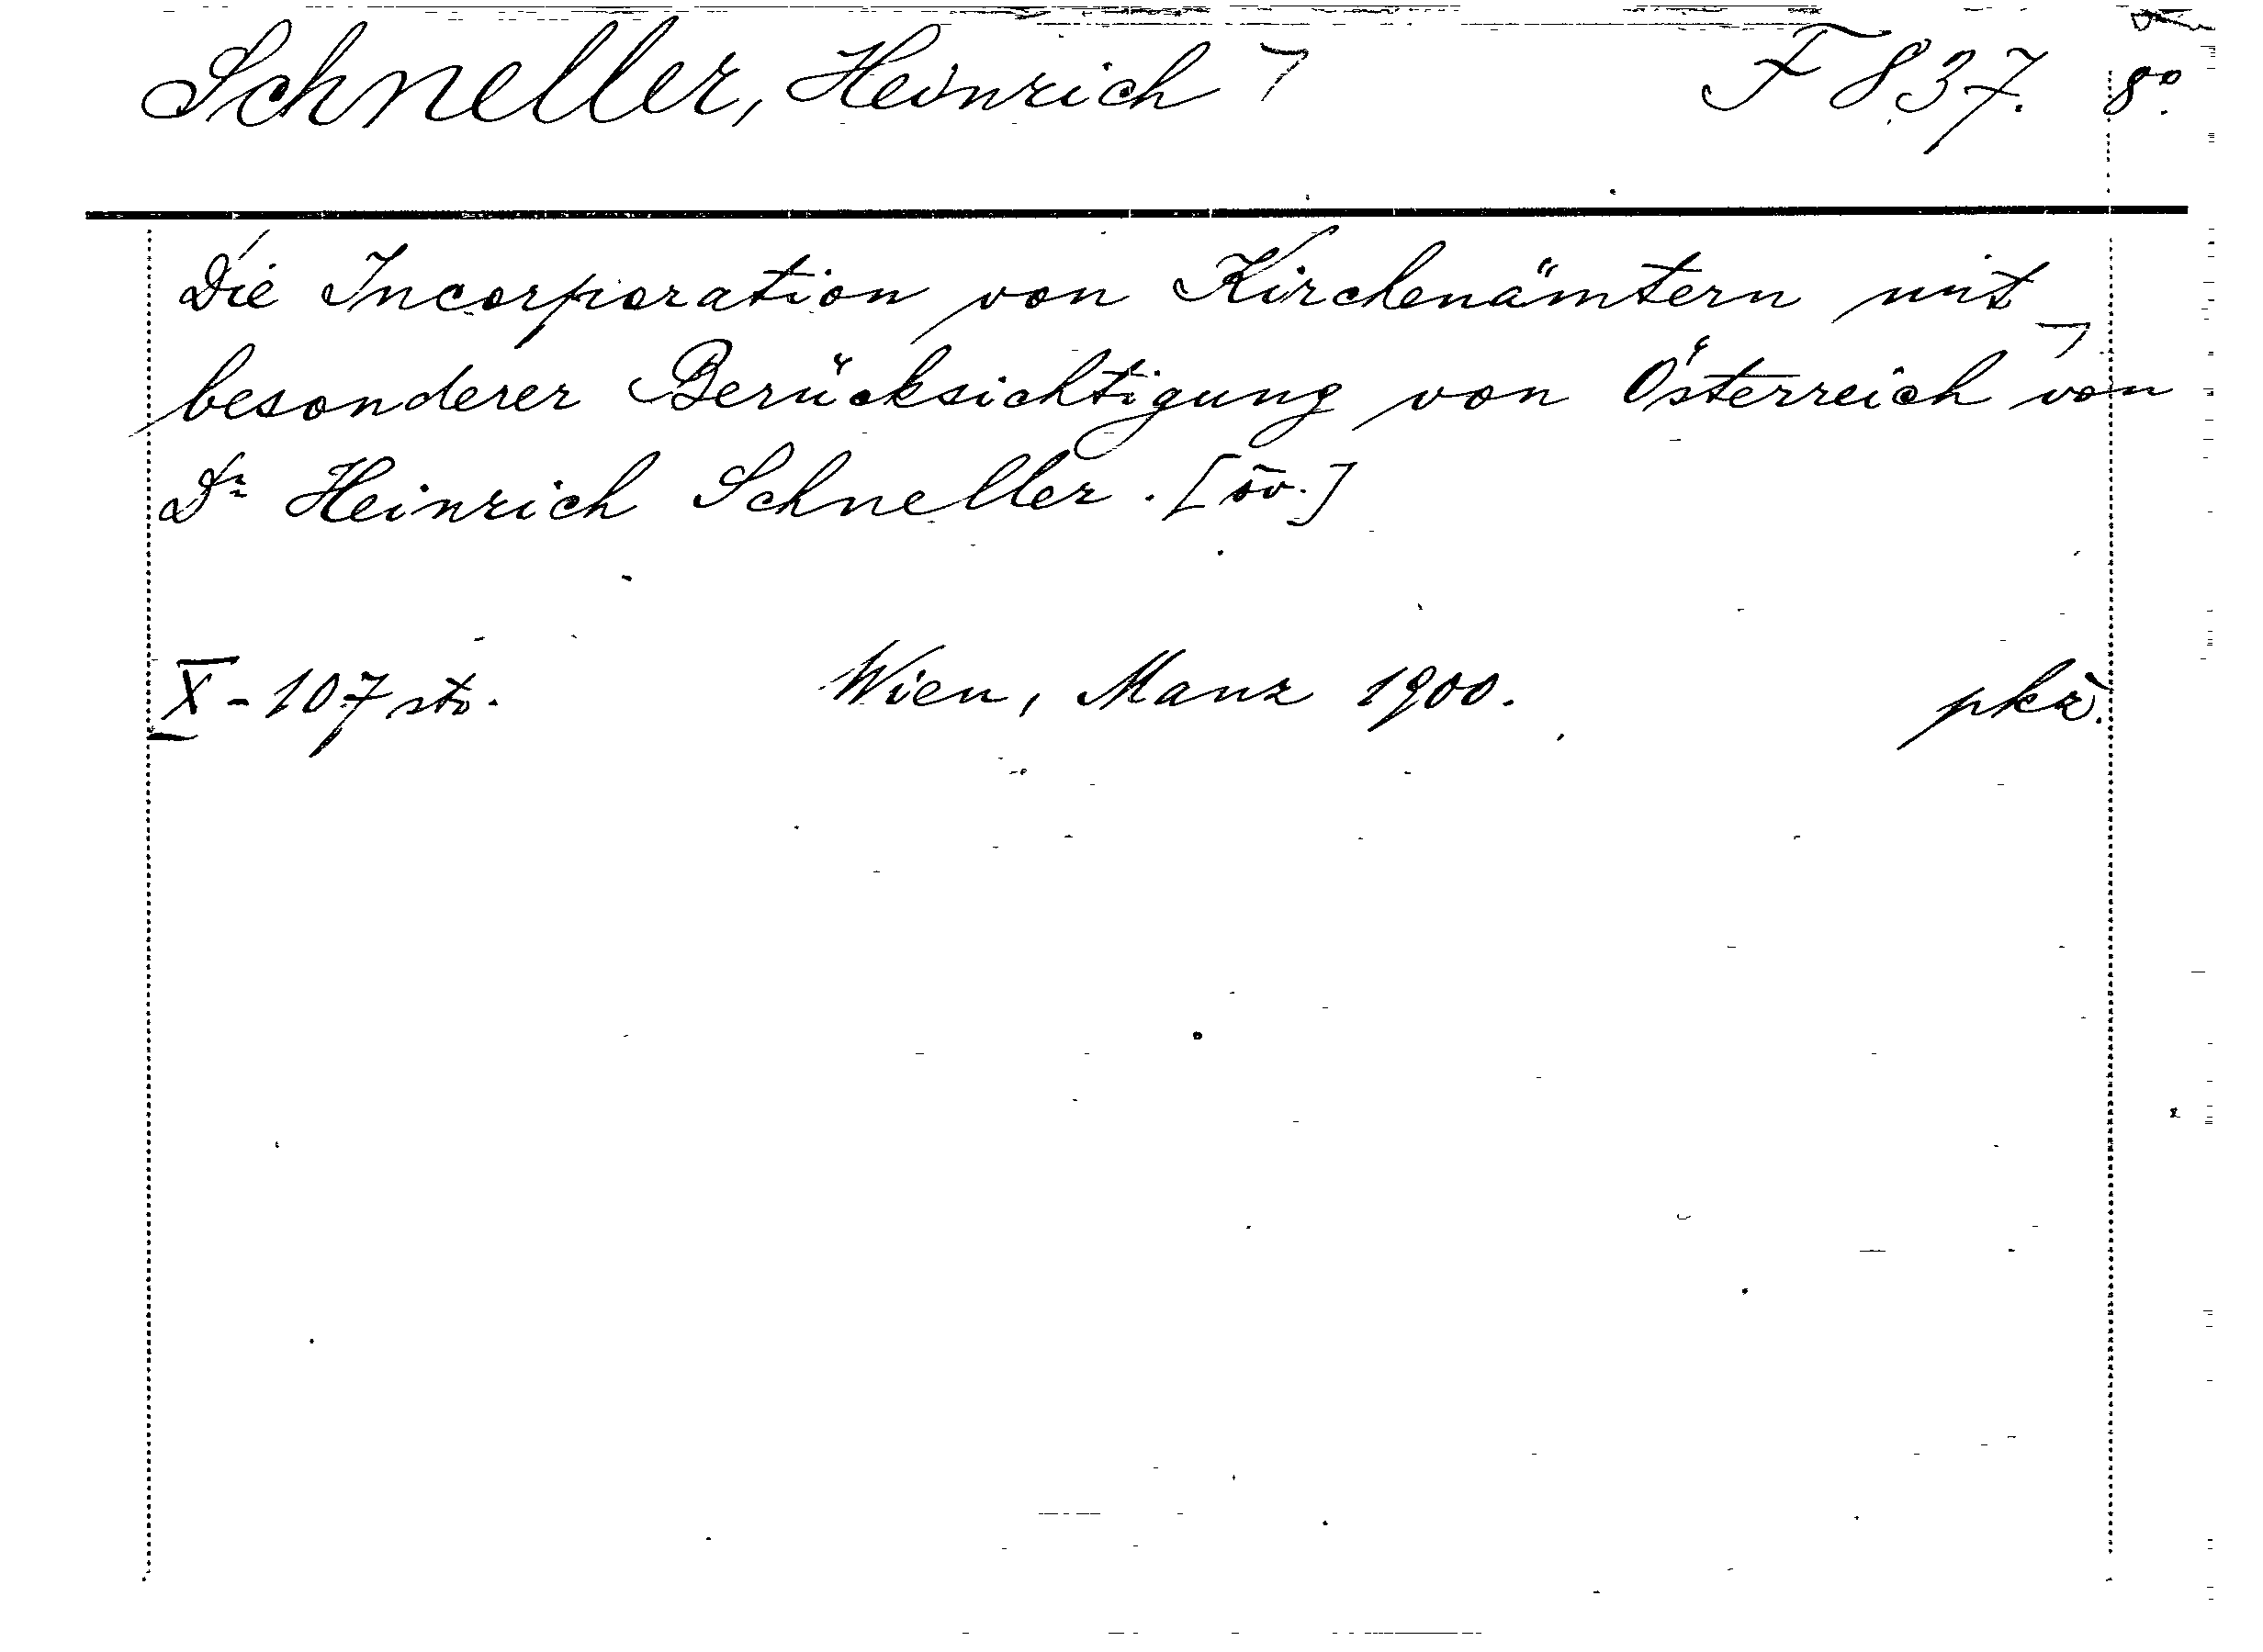 Schneller, Heinrich ⁊ F 837. 8⁰.
Die Incorporation von Kirchenämtern mit ⁊
besonderer Berücksichtigung von Österreich von
Dr Heinrich Schneller. [öv.]
X - 107 str. Wien, Manz 1900. pkž.